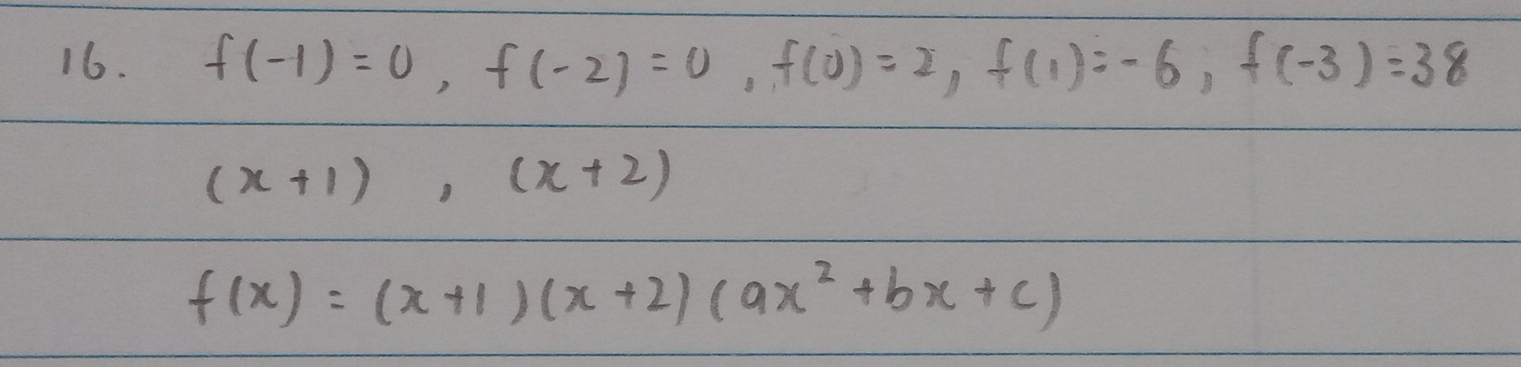 16. f(-1)=0, f(-2)=0, f(0)=2, f(1)=-6, f(-3)=38
(x+1) , (x+2)
f(x) = (x+1)(x+2)(ax²+bx+c)